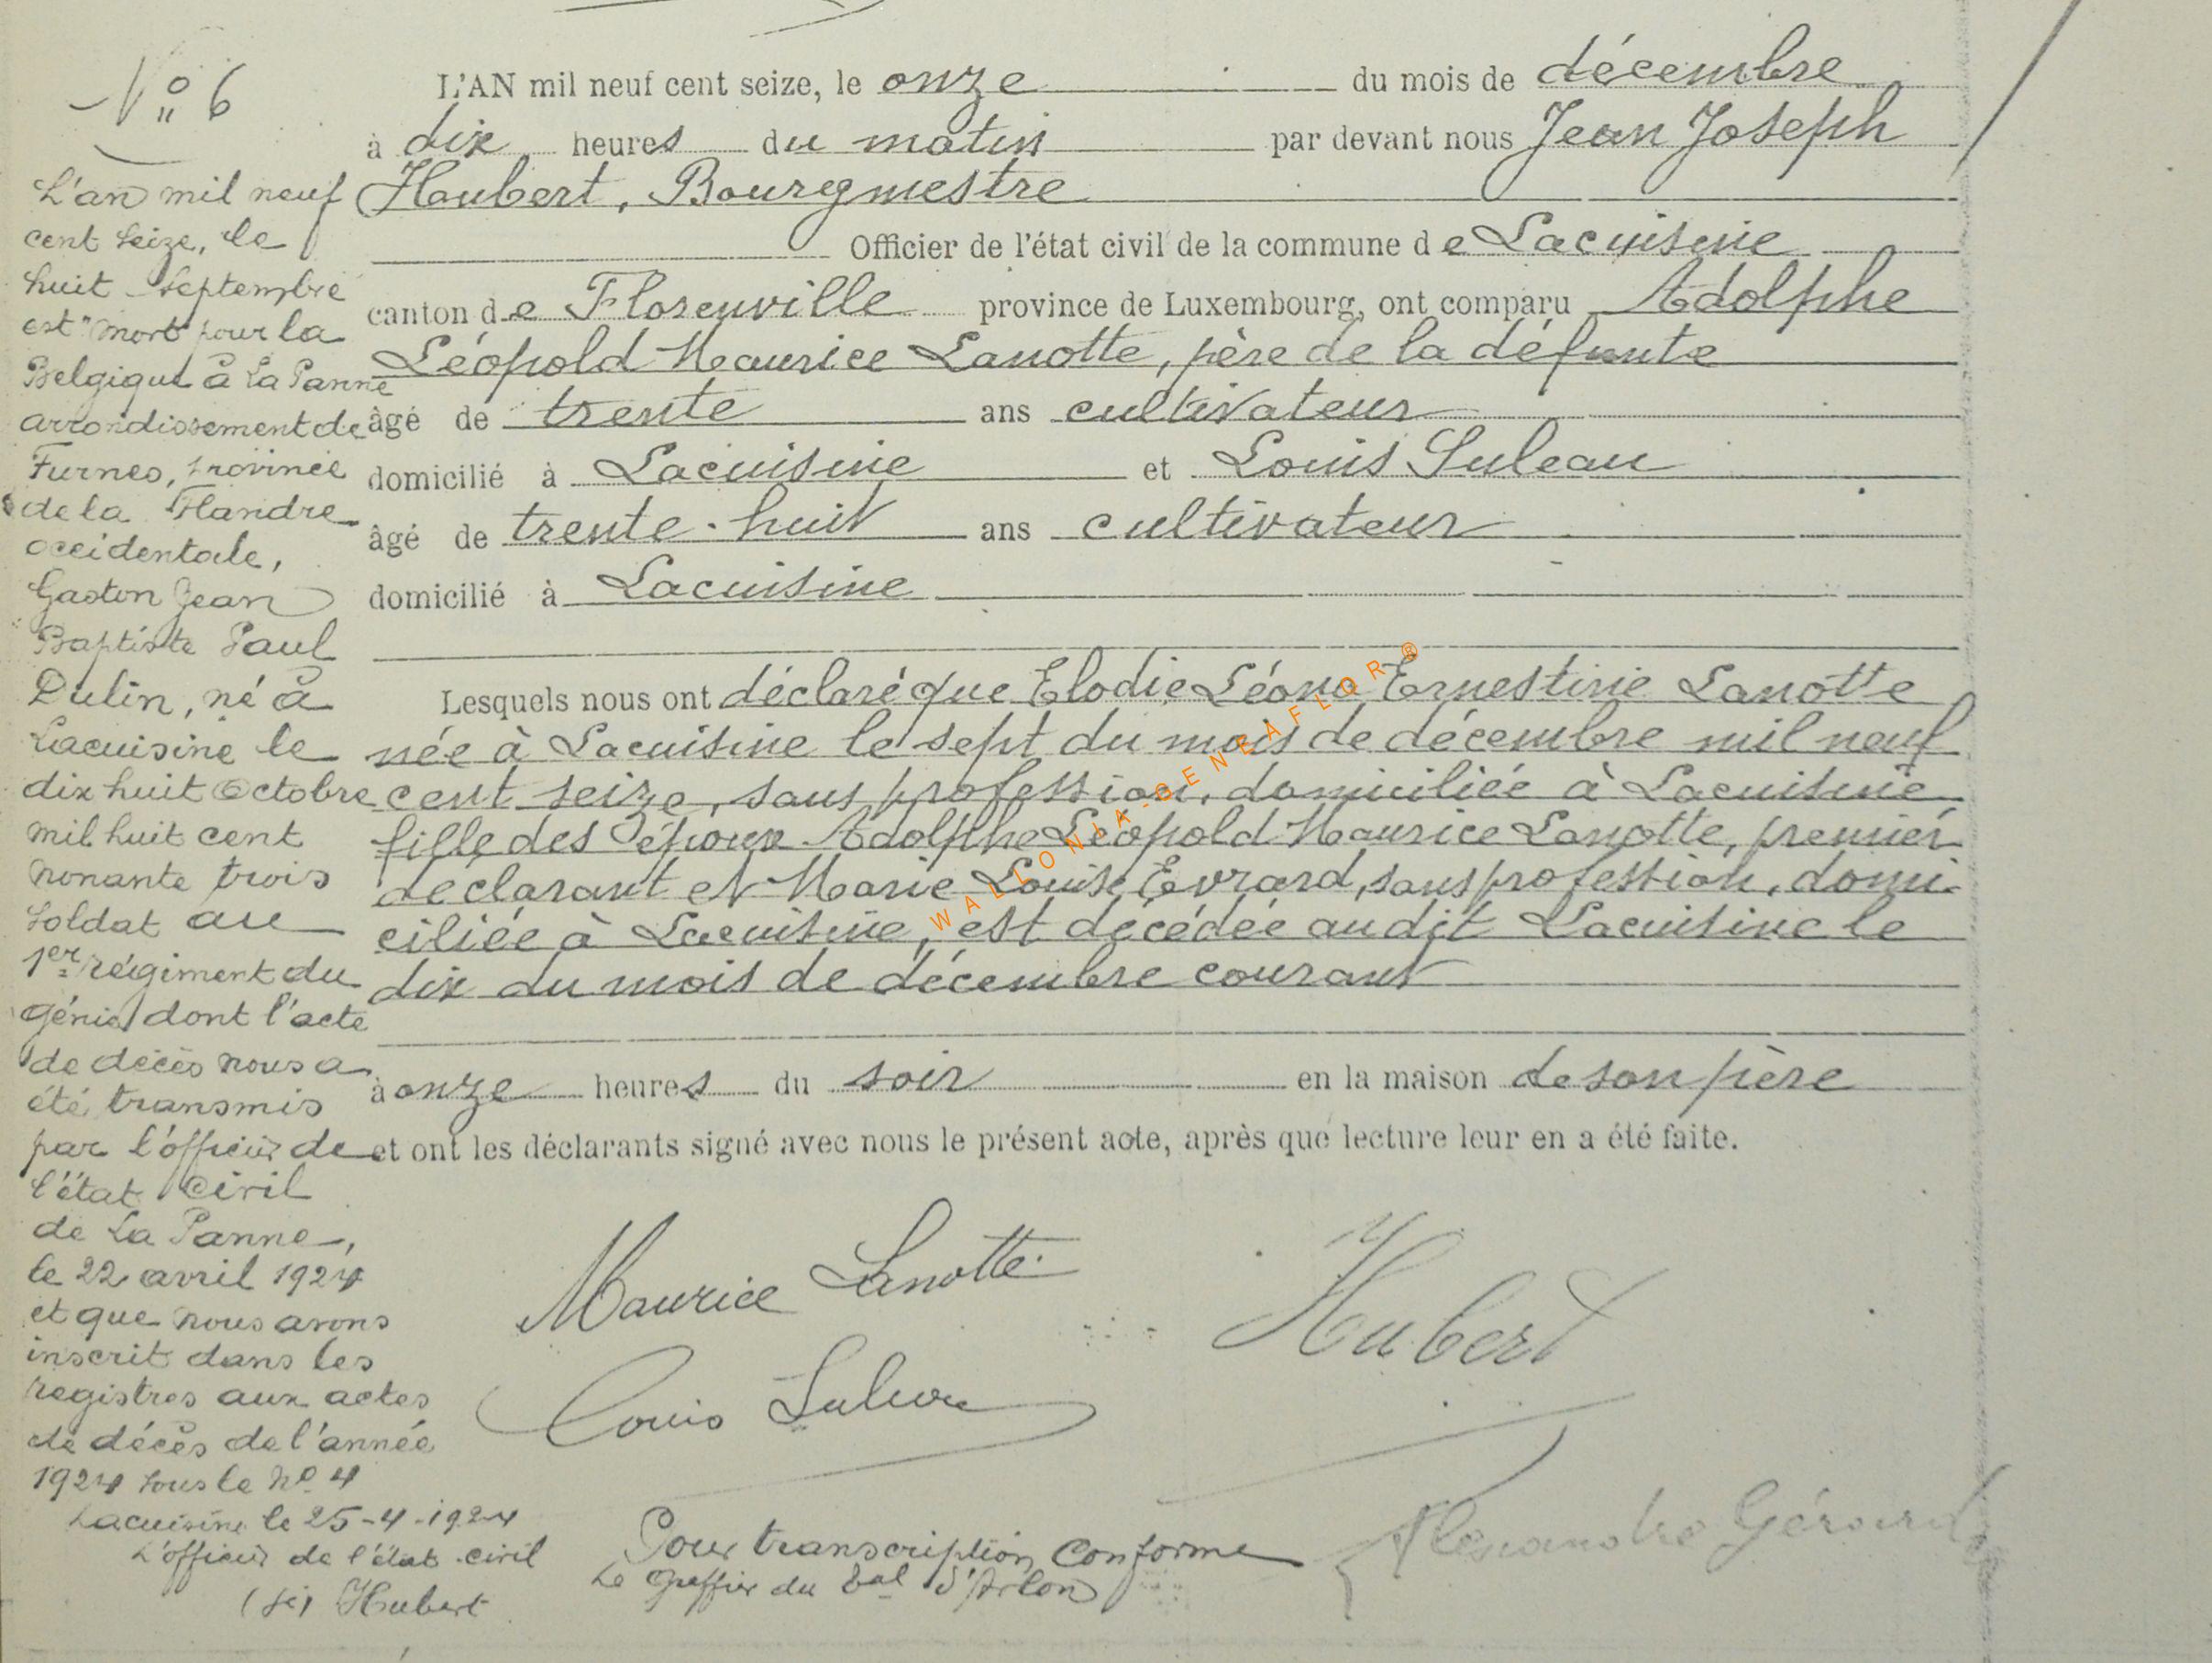 N° 6
L'an mil neuf
cent seize, le
huit septembre
est "mort pour la
Belgique à La Panne
arrondissement de
Furnes, province
de la Flandre
occidentale,
Gaston Jean
Baptiste Paul
Dulin, né à
Lacuisine le
dix huit Octobre
mil huit cent
nonante trois
soldat au
1er régiment du
génie dont l'acte
de décès nous a
été transmis
par l'officier de
l'état civil
de La Panne,
le 22 avril 1924
et que nous avons
inscrit dans les
registres aux actes
de décès de l'année
1924 sous le No 4
Lacuisine le 25-4-1924
L'officier de l'état civil
(sé) Hubert
L'AN mil neuf cent seize, le onze du mois de décembre
à dix heures du matin par devant nous Jean Joseph
Houbert, Bourgmestre
Officier de l'état civil de la commune de Lacuisine
canton de Florenville province de Luxembourg, ont comparu Adolphe
Léopold Maurice Lanotte, père de la défunte
âgé de trente ans cultivateur
domicilié à Lacuisine et Louis Suleau
âgé de trente-huit ans cultivateur
domicilié à Lacuisine
Lesquels nous ont déclaré que Elodie Léona Ernestine Lanotte
née à Lacuisine le sept du mois de décembre mil neuf
cent seize, sans profession, domiciliée à Lacuisine
fille des époux Adolphe Léopold Maurice Lanotte, premier
déclarant et Marie Louise Evrard, sans profession, domi-
ciliée à Lacuisine, est décédée au dit Lacuisine le
dix du mois de décembre courant
à onze heures du soir en la maison de son père
et ont les déclarants signé avec nous le présent acte, après que lecture leur en a été faite.
Maurice Lanotte
Hubert
Louis
Pour transcription conforme
Le Greffier du Bal d'Arlon
Alexandre Gérard
WALLONIA-GENEAFLOR®